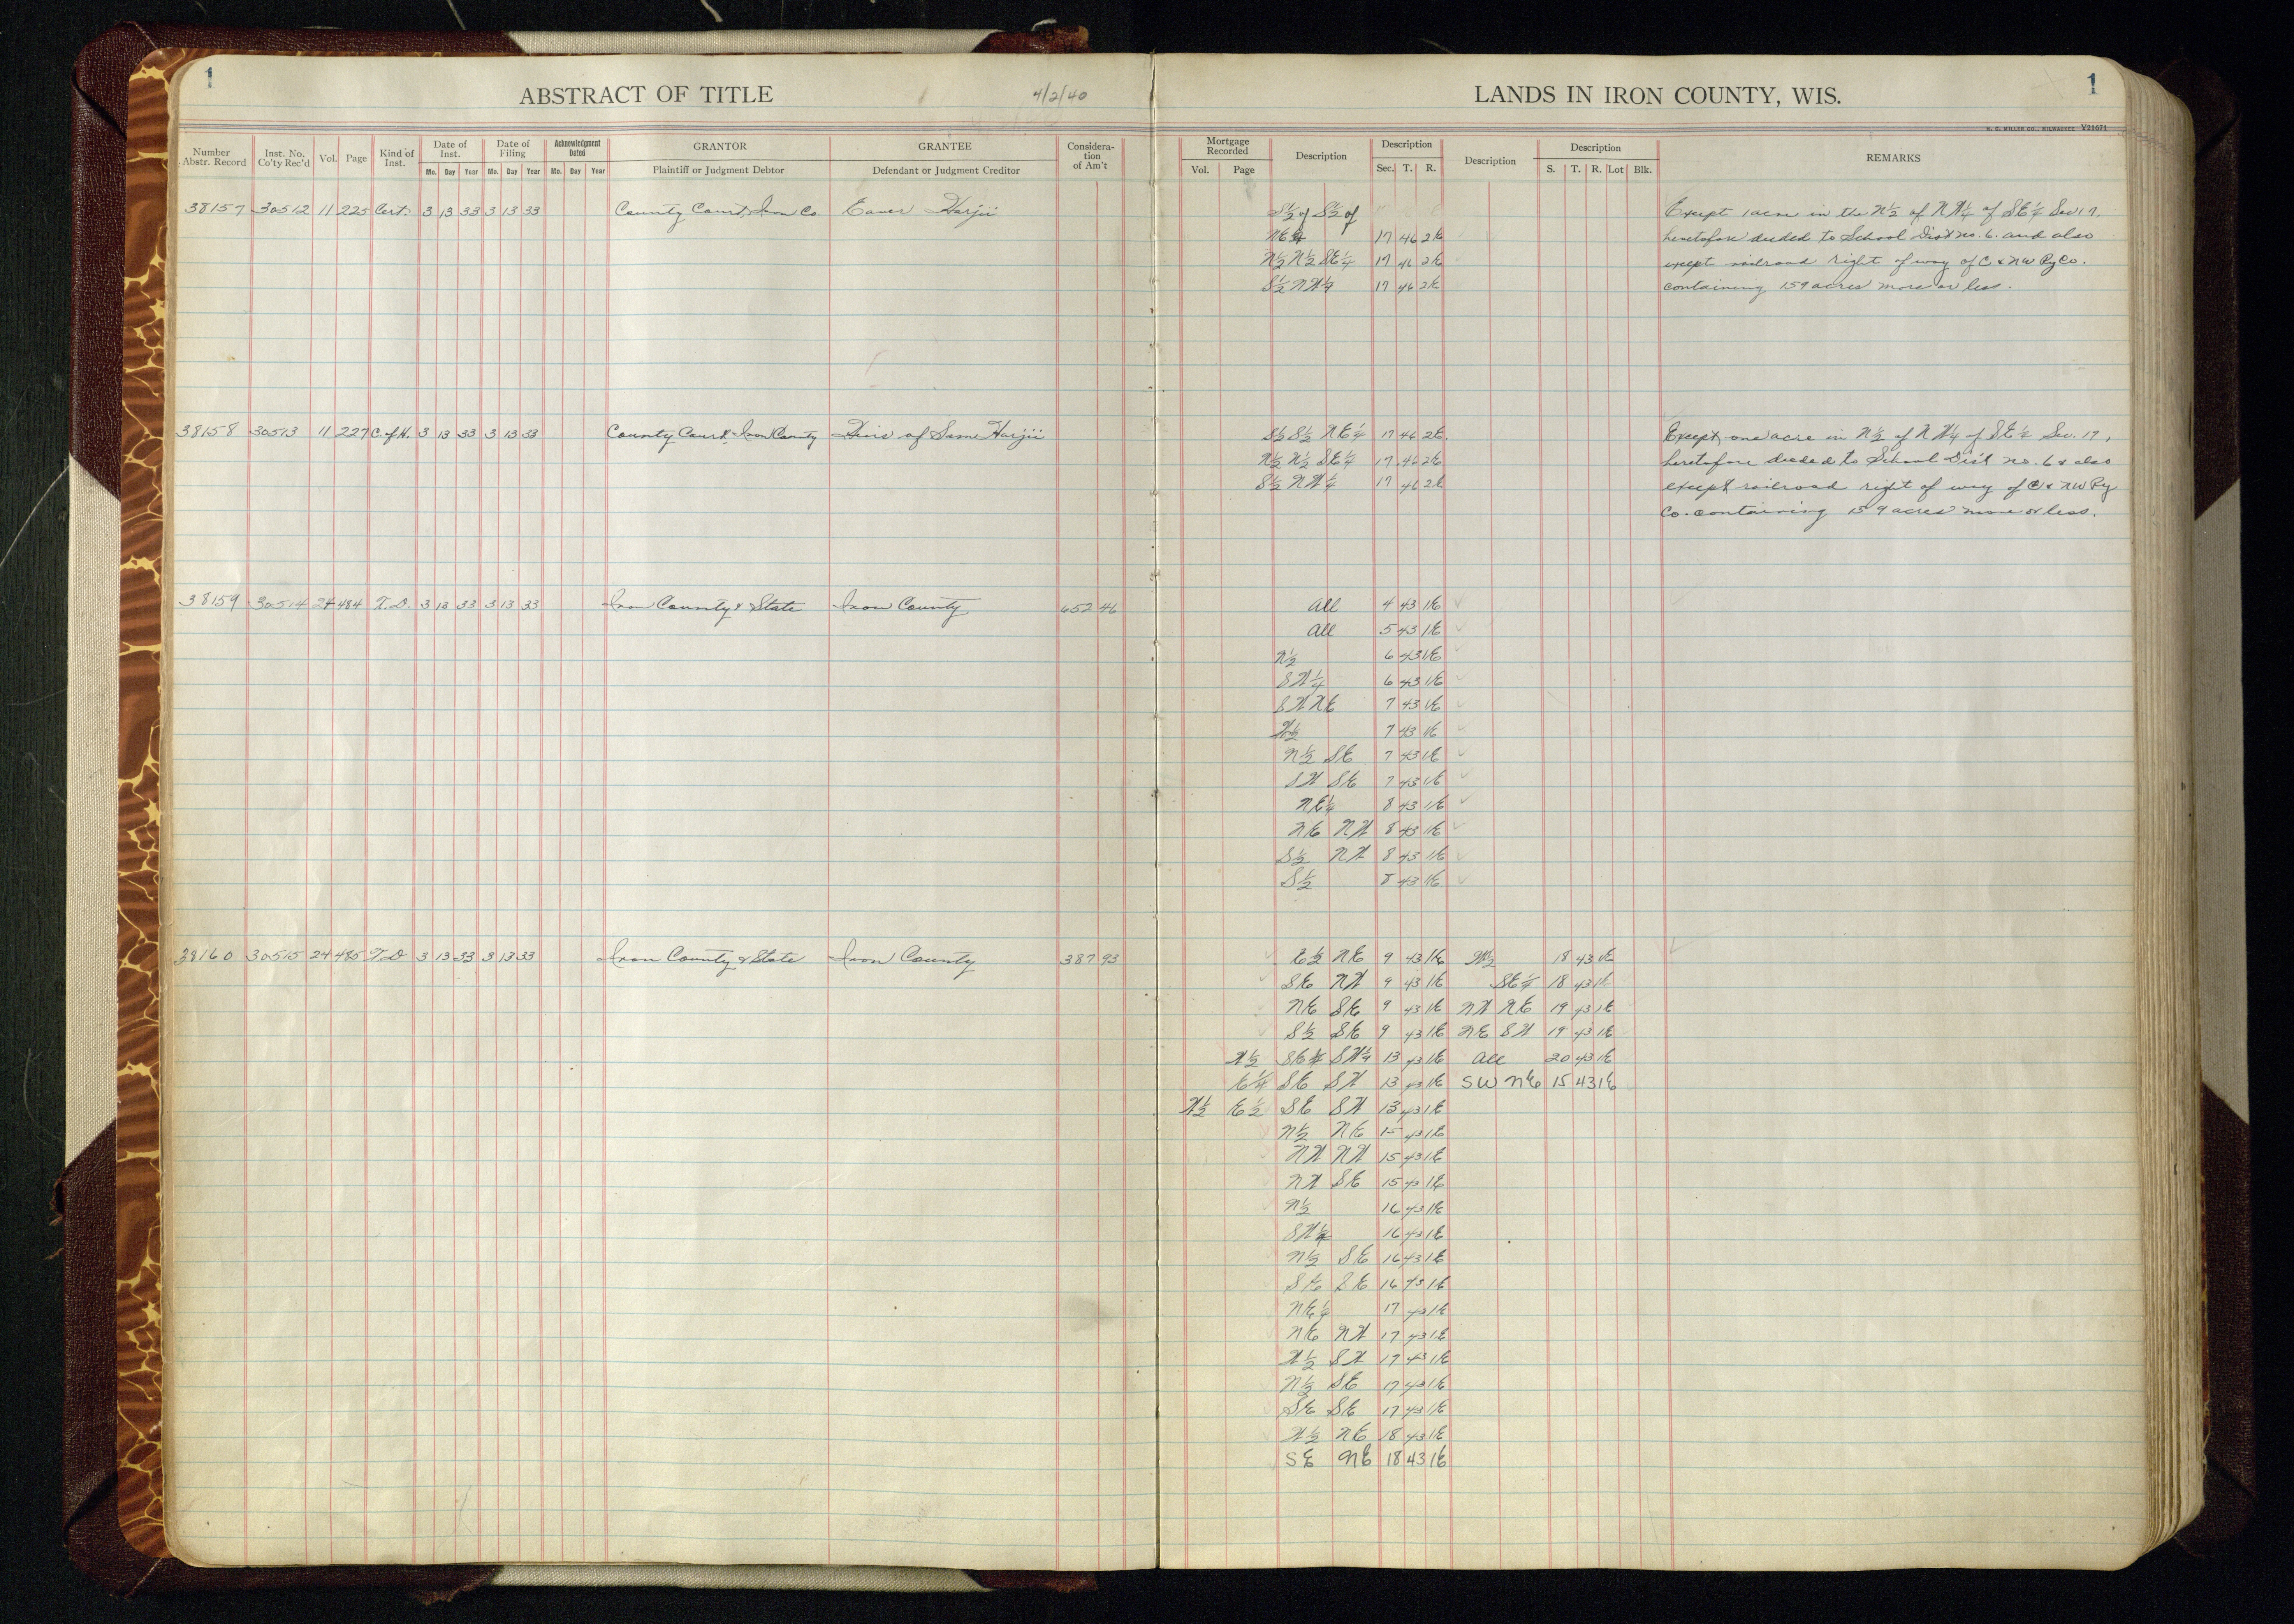 1
ABSTRACT OF TITLE 4/2/40
Number Abstr. Record Inst. No. Co'ty Rec'd Vol. Page Kind of Inst. Date of Inst. Date of Filing Acknowledgment Dated GRANTOR GRANTEE Considera-tion of Am't
Mo. Day Year Mo. Day Year Mo. Day Year Plaintiff or Judgment Debtor Defendant or Judgment Creditor
38157 30512 11 225 Cert. 3 13 33 3 13 33 County Court, Iron Co. Harjii
38158 30513 11 227 C. of H. 3 13 33 3 13 33 County Court, Iron County Heirs of Sam Harjii
38159 30514 24 484 T. D. 3 13 33 3 13 33 Iron County & State Iron County 652 46
38160 30515 24 485 T. D 3 13 33 3 13 33 Iron County & State Iron County 387 93
LANDS IN IRON COUNTY, WIS. 1
H. C. MILLER CO., MILWAUKEE V21671
Mortgage Recorded Description Description Description Description REMARKS
Vol. Page Sec. T. R. S. T. R. Lot Blk.
S½ of S½ of Except 1 acre in the N½ of NW¼ of SE¼ Sec 17,
NE¼ 17 46 2E heretofore deeded to School Dist no. 6. and also
N½ N½ SE¼ 17 46 2E except railroad right of way of C & NW Ry Co.
S½ NW¼ 17 46 2E containing 159 acres more or less.
S½ S½ NE¼ 17 46 2E. Except, one acre in N½ of NW¼ of SE¼ Sec. 17,
N½ N½ SE¼ 17 46 2E heretofore deeded to School Dist no. 6 & also
S½ NW¼ 17 46 2E except railroad right of way of C & NW Ry
Co. containing 159 acres more or less.
All 4 43 1E
All 5 43 1E
N½ 6 43 1E
SW¼ 6 43 1E
SW NE 7 43 1E
W½ 7 43 1E
N½ SE 7 43 1E
SW SE 7 43 1E
NE¼ 8 43 1E
NE NW 8 43 1E
S½ NW 8 43 1E
S½ 8 43 1E
E½ NE 9 43 1E W½ 18 43 1E
SE NW 9 43 1E SE¼ 18 43 1E
NE SE 9 43 1E NW NE 19 43 1E
S½ SE 9 43 1E NE SW 19 43 1E
W½ SE¼ SW¼ 13 43 1E All 20 43 1E
E¼ SE SW 13 43 1E SW NE 15 43 1E
W½ E½ SE SW 13 43 1E
N½ NE 15 43 1E
NW NW 15 43 1E
NW SE 15 43 1E
N½ 16 43 1E
SW¼ 16 43 1E
N½ SE 16 43 1E
SE SE 16 43 1E
NE¼ 17 43 1E
NE NW 17 43 1E
W½ SW 17 43 1E
N½ SE 17 43 1E
SE SE 17 43 1E
W½ NE 18 43 1E
SE NE 18 43 1E